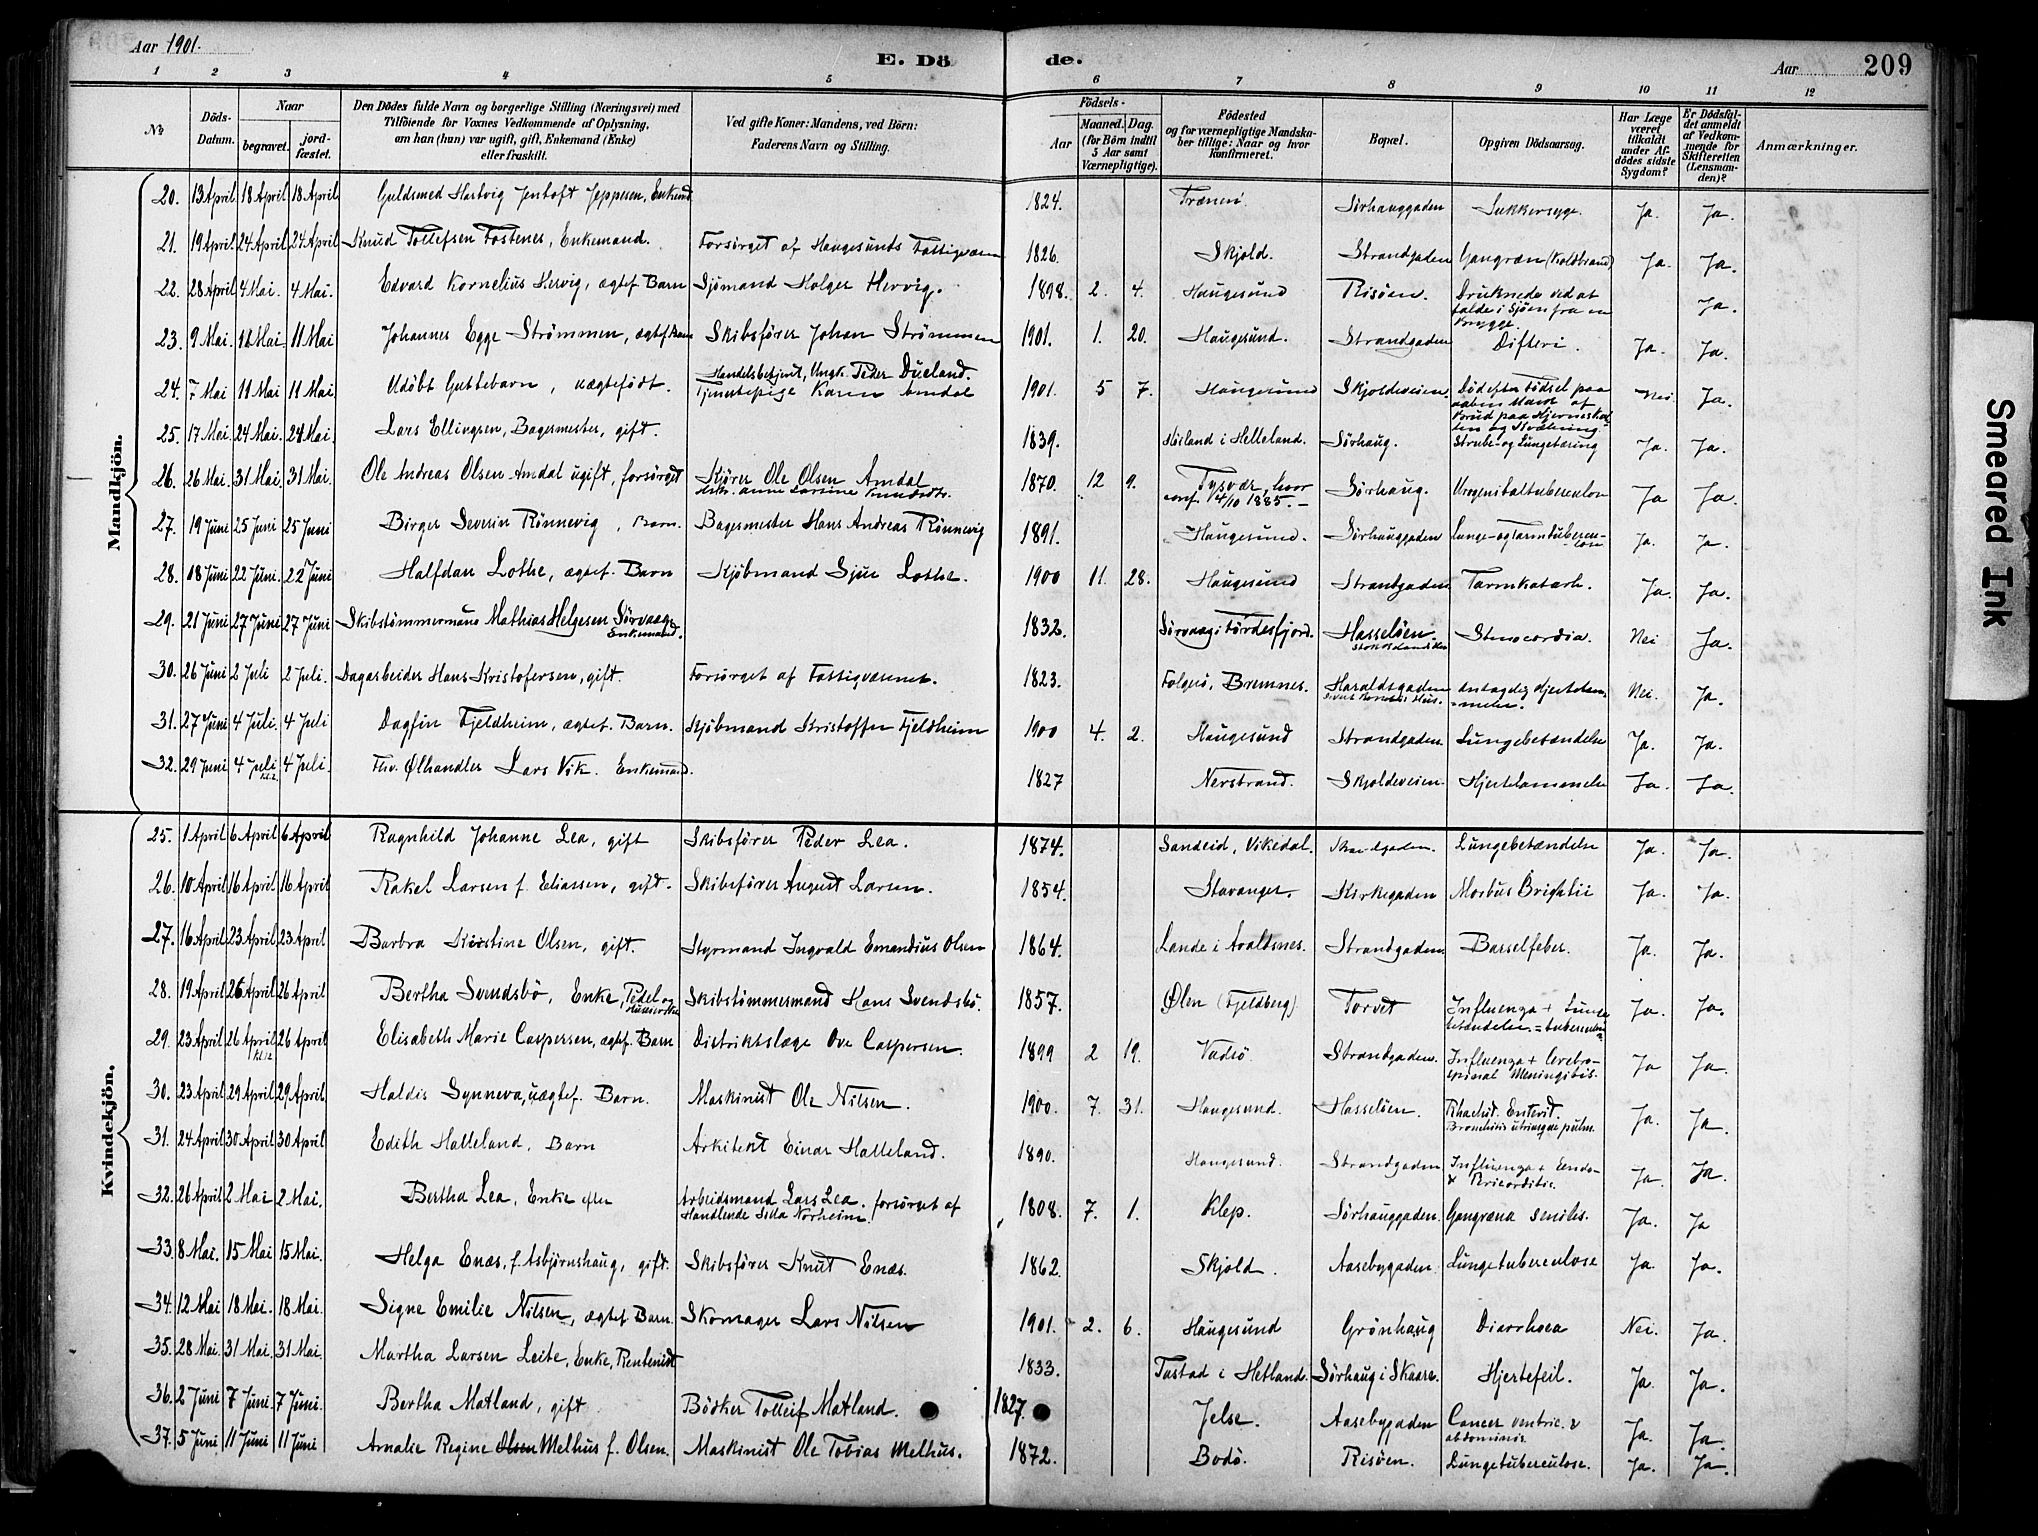 Aar 1901.
E. Dö de.
Aar
209
1 2 3 4 5 6 7 8 9 10 11 12
№
Döds-Datum.
Naar
begravet.
jord-fæstet.
Den Dödes fulde Navn og borgerlige Stilling (Næringsvei) med
Tilföiende for Voxnes Vedkommende af Oplysning,
om han (hun) var ugift, gift, Enkemand (Enke)
eller fraskilt.
Ved gifte Koner: Mandens, ved Börn:
Faderens Navn og Stilling.
Födsels-
Aar
Maaned.
Dag.
(for Börn indtil 5 Aar samt Værnepligtige).
Födested
og for værnepligtige Mandska-
ber tillige: Naar og hvor
konfirmeret.
Bopæl.
Opgiven Dödsaarsag.
Har Læge
været
tilkaldt
under Af-
dödes sidste
Sygdom?
Er Dödsfal-
det anmeldt
af Vedkom-
mende for
Skifteretten
(Lensman-
den)?
Anmærkninger.
Mandkjön.
20. 13 April 18 April 18 April Guldsmed Hartvig Jentoft Jeppesen, Enkemd 1824. Trænen. Sörhauggaden Sukkersyge. Ja. Ja.
21. 19 April 24 April 24 April Knud Tollefsen Fostenes, Enkemand. Forsörget af Haugesunds Fattigvæsen 1826. Skjold. Strandgaden Gangræn (Koldbrand) Ja. Ja.
22. 28 April 4 Mai. 4 Mai. Edvard Kornelius Hervig, ægtef. Barn Sjömand Holger Hervig. 1898. 2. 4. Haugesund Risöen. Druknede ved at falde i Sjöen fra en Brygge. Ja.
23. 9 Mai. 11 Mai. 11 Mai Johannes Egge Strömmen, ægtef. Barn Skibsförer Johan Strömmen 1901. 1. 20. Haugesund. Strandgaden Difteri. Ja. Ja.
24. 7 Mai 11 Mai 11 Mai Udöbt Guttebarn, uægtefödt. Handelsbetjent, Ungk. Peder Dueland. Tjenestepige Karen Amdal 1901. 5 7. Haugesund Skjoldeveien. Död efter Födsel paa aaben Mark af Brud paa Hjerneskal- len og Kvælning. Nei Ja.
25. 17 Mai. 24 Mai. 24 Mai. Lars Ellingsen, Bagermester, gift. 1839. i Helleland. Sörhaug. Strube- og Lungetæring Ja. Ja.
26. 26 Mai. 31 Mai. 31 Mai. Ole Andreas Olsen Amdal ugift, forsörget Kjörer Ole Olsen Amdal 1870. 12 9. Tysvær, hvor conf. 4/10 1885. Sörhaug. Urogenitaltuberculose Ja Ja.
27. 19 Juni 25 Juni 25 Juni Birger Severin Rönnevig, Barn. Bagermester Hans Andreas Rönnevig 1891. Haugesund. Sörhauggaden Lunge- og Tarmtubercu- lose Ja. Ja.
28. 18 Juni 22 Juni. 22 Juni Halfdan Lothe, ægtef. Barn Kjöbmand Sjur Lothe. 1900 11. 28. Haugesund Strandgaden Tarmkatarh. Ja. Ja.
29. 21 Juni 27 Juni 27 Juni Skibstömmermand Mathias Helgesen Sörvaag Enkemand. 1832. Sörvaag i Fördesfjord. Hasselöen. Stenocordia. Nei Ja.
30. 26 Juni 2 Juli 2 Juli. Dagarbeider Hans Kristofersen, gift. Forsörget af Fattigvæsenet. 1823. Folgerö, Bremnes. Haraldsgaden antagelig Hjertelam- melse. Nei. Ja.
31. 27 Juni 4 Juli. 4 Juli Dagfin Fjeldheim, ægtef. Barn. Kjöbmand Kristoffer Fjeldheim 1900 4. 2. Haugesund Strandgaden Lungebetændelse Ja. Ja.
32. 29 Juni 4 Juli 4 Juli. Fhv. Ølhandler Lars Vik. Enkemand. 1827 Nerstrand. Skjoldeveien. Hjertelammelse Ja. Ja.
Kvindekjön.
25. 1 April 6 April 6 April Ragnhild Johanne Lea, gift Skibsförer Peder Lea. 1874. Sandeid, Vikedal. Strandgaden. Lungebetændelse Ja. Ja.
26. 10 April 16 April 16 April Rakel Larsen f. Eliassen, gift. Skibsförer August Larsen. 1854. Stavanger. Kirkegaden Morbus Brightii Ja. Ja.
27. 16 April 23 April 23 April Barbra Kirstine Olsen, gift. Styrmand Ingvald Emandius Olsen 1864. Lande i Avaldsnes. Strandgaden Barselfeber. Ja. Ja.
28. 19 April 26 April 26 April Bertha Svendsbö, Enke, Pedel og Skibstömmermand Hans Svendsbö. 1857. Ølen (Fjeldberg) Torvet Influenza + Lunge betændelse = tuberculose Ja. Ja.
29. 23 April 26 April Kl. 12 26 April Elisabeth Marie Caspersen, ægtef. Barn Distriktslæge Ove Caspersen. 1899 2 19. Vadsö. Strandgaden. Influenza + Cerebro- spinal Meningitis. Ja Ja.
30. 23 April 29 April 29 April Haldis Synneva, uægtef. Barn. Maskinist Ole Nilsen. 1900. 7. 31. Haugesund. Hasselöen. Rhachit. Enterit. Bronchitis utriusque pulm. Ja. Ja.
31. 24 April 30 April 30 April Edith Halleland, Barn Arkitekt Einar Halleland. 1890. Haugesund. Strandgaden Influenza + Endo- & Pericarditis. Ja. Ja.
32. 26 April 2 Mai 2 Mai. Bertha Lea, Enke efter Arbeidsmand Lars Lea. forsörget af Handlende Sella Norheim. 1808. 7. 1. Klep. Sörhauggaden. Gangræna senilis. Ja. Ja
33. 8 Mai. 15 Mai 15 Mai. Helga Enæs, f. Asbjörnshaug, gift. Skibsförer Knut Enæs. 1862. Skjold. Aasebygaden. Lungetuberculose Ja. Ja.
34. 12 Mai 18 Mai. 18 Mai. Signe Emilie Nilsen, ægtef. Barn. Skomager Lars Nilsen 1901. 2. 6. Haugesund Grönhaug Diarrhoea Nei. Ja.
35. 28 Mai. 31 Mai. 31 Mai. Martha Larsen Leite, Enke, Rentenist 1833. Tastad i Hetland. Sörhaug i Skaare. Hjertefeil. Ja. Ja.
36. 2 Juni 7 Juni. 7 Juni. Bertha Matland, gift Bödker Tolleif Matland. 1827. Jelse. Aasebygaden Cancer ventric. & abdominis. Ja. Ja.
37. 5 Juni 11 Juni 11 Juni Amalie Regine Olsen Melhus f. Olsen. Maskinist Ole Tobias Melhus. 1872. Bodö. Risöen. Lungetuberculose. Ja. Ja.
Smeared Ink